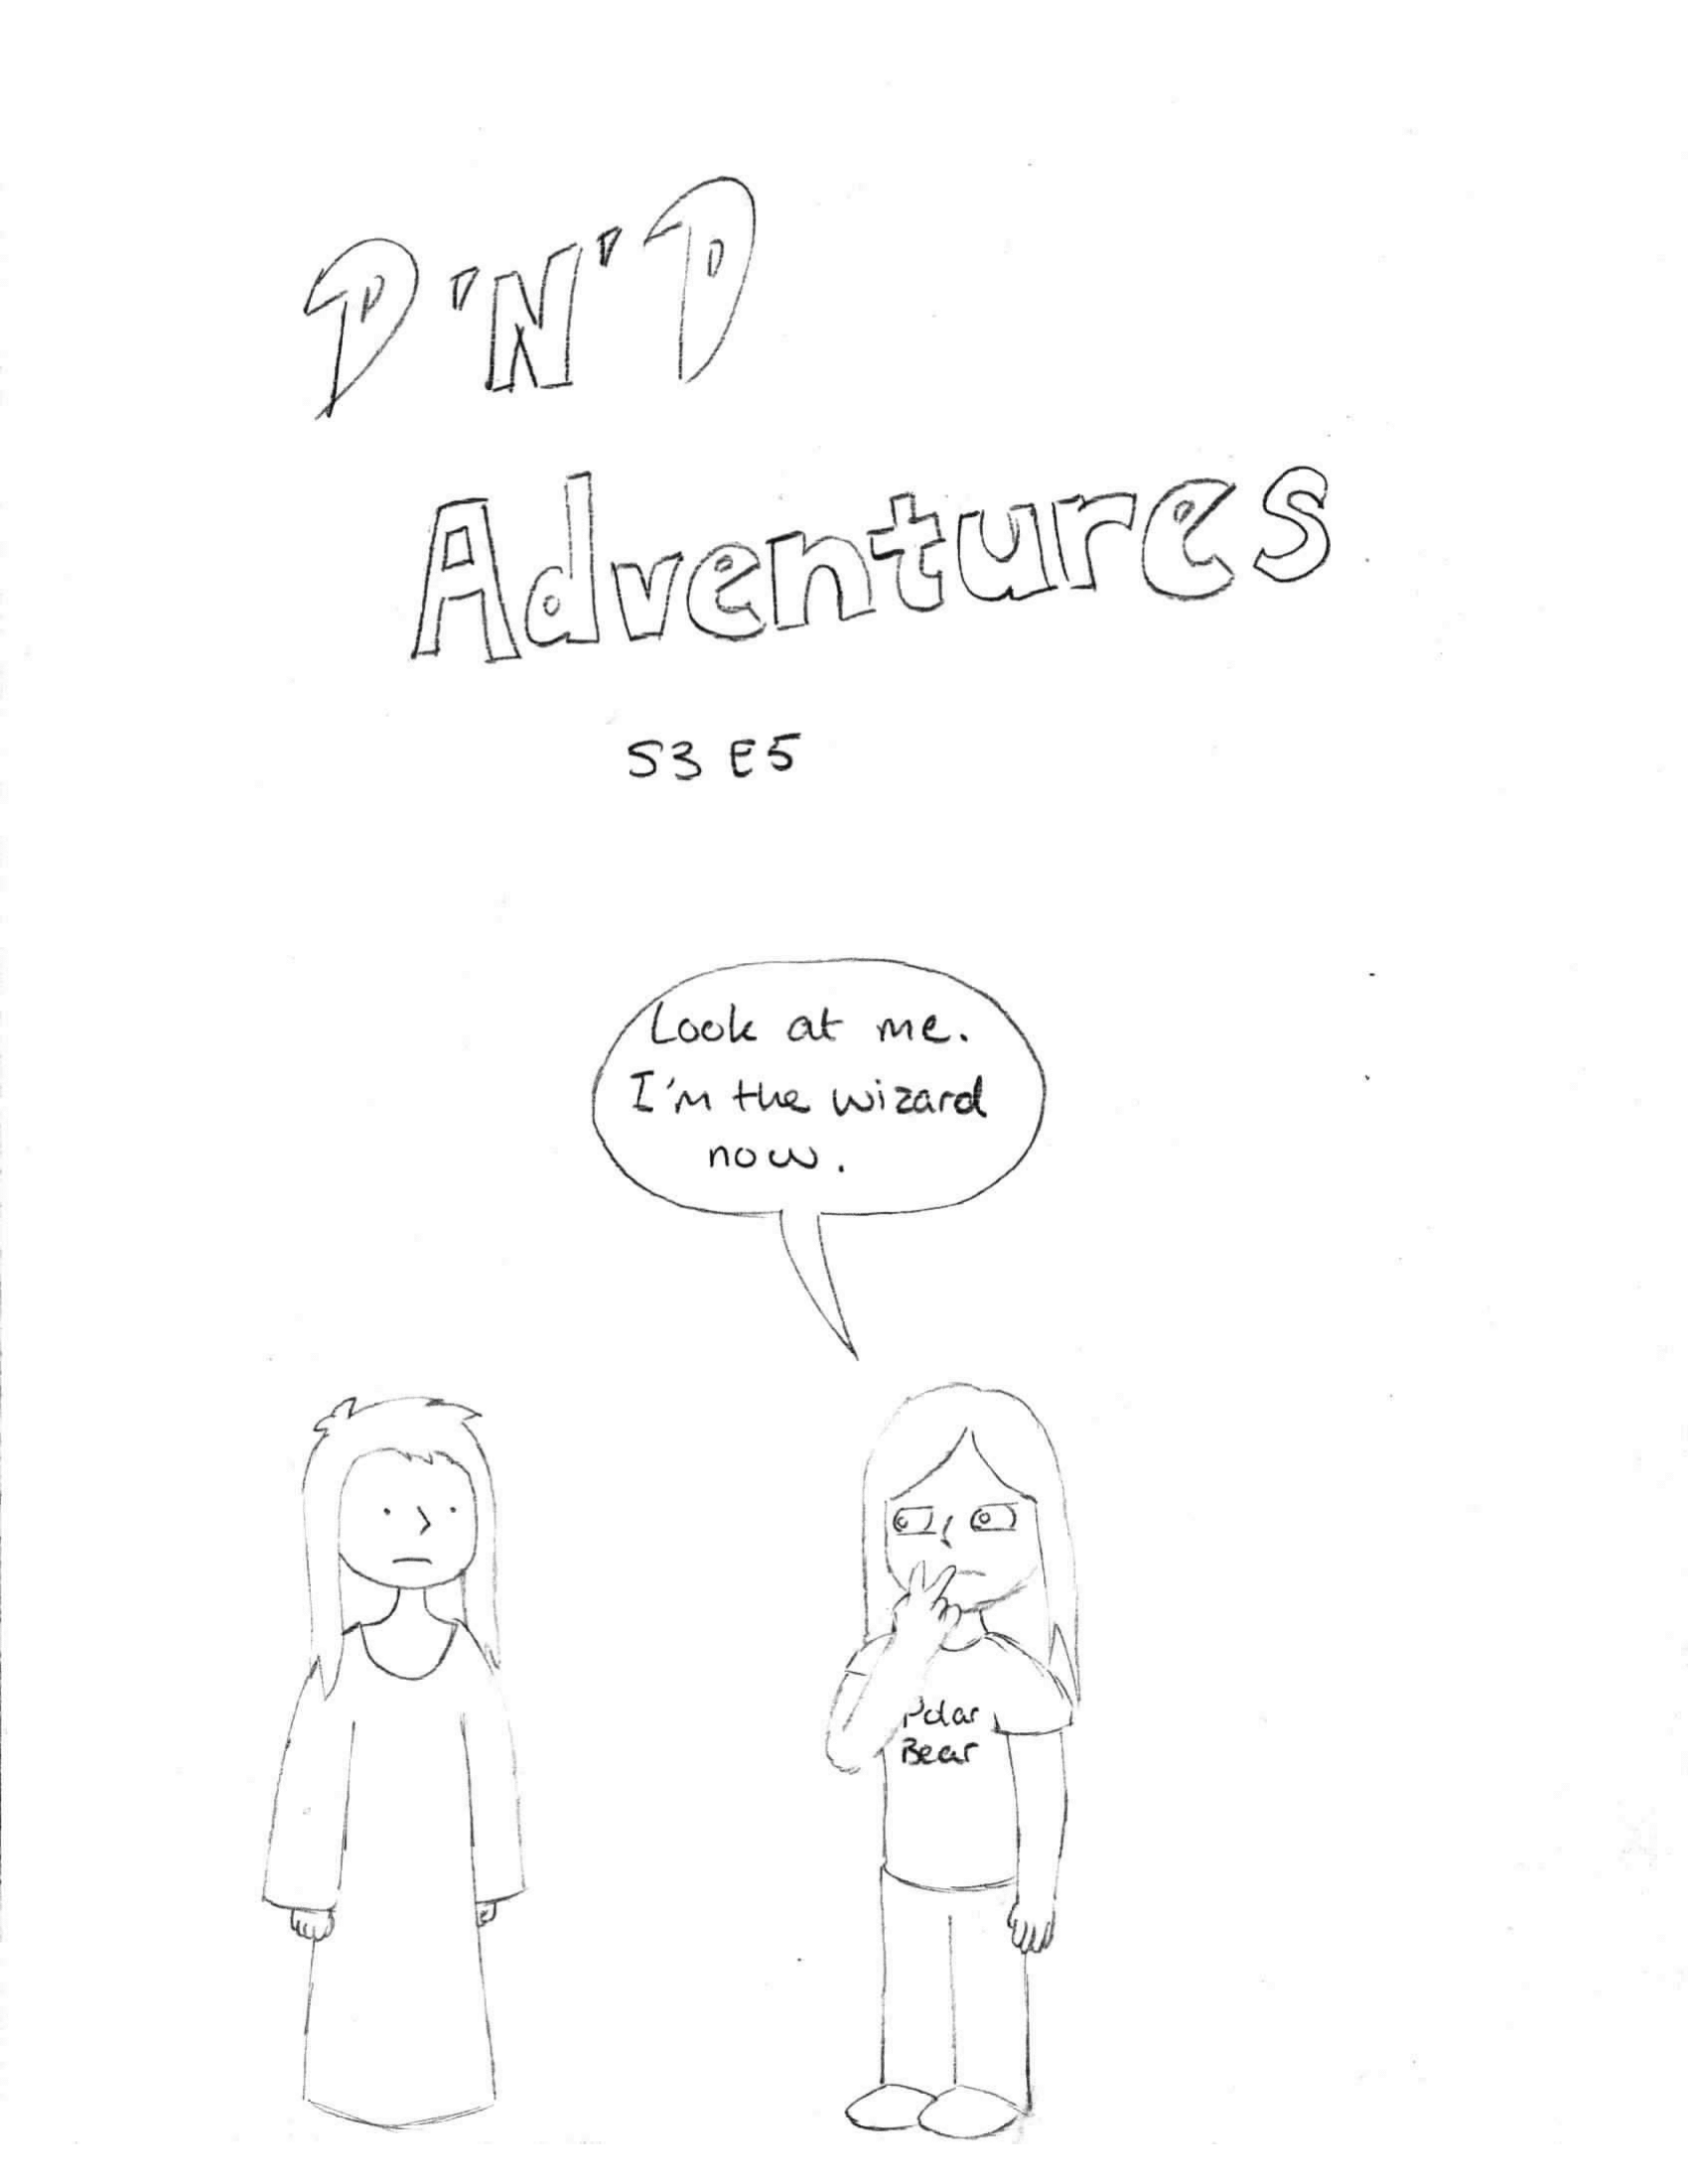 D'N'D
Adventures
S3 E5
Look at me.
I'm the wizard
now.
Polar
Bear